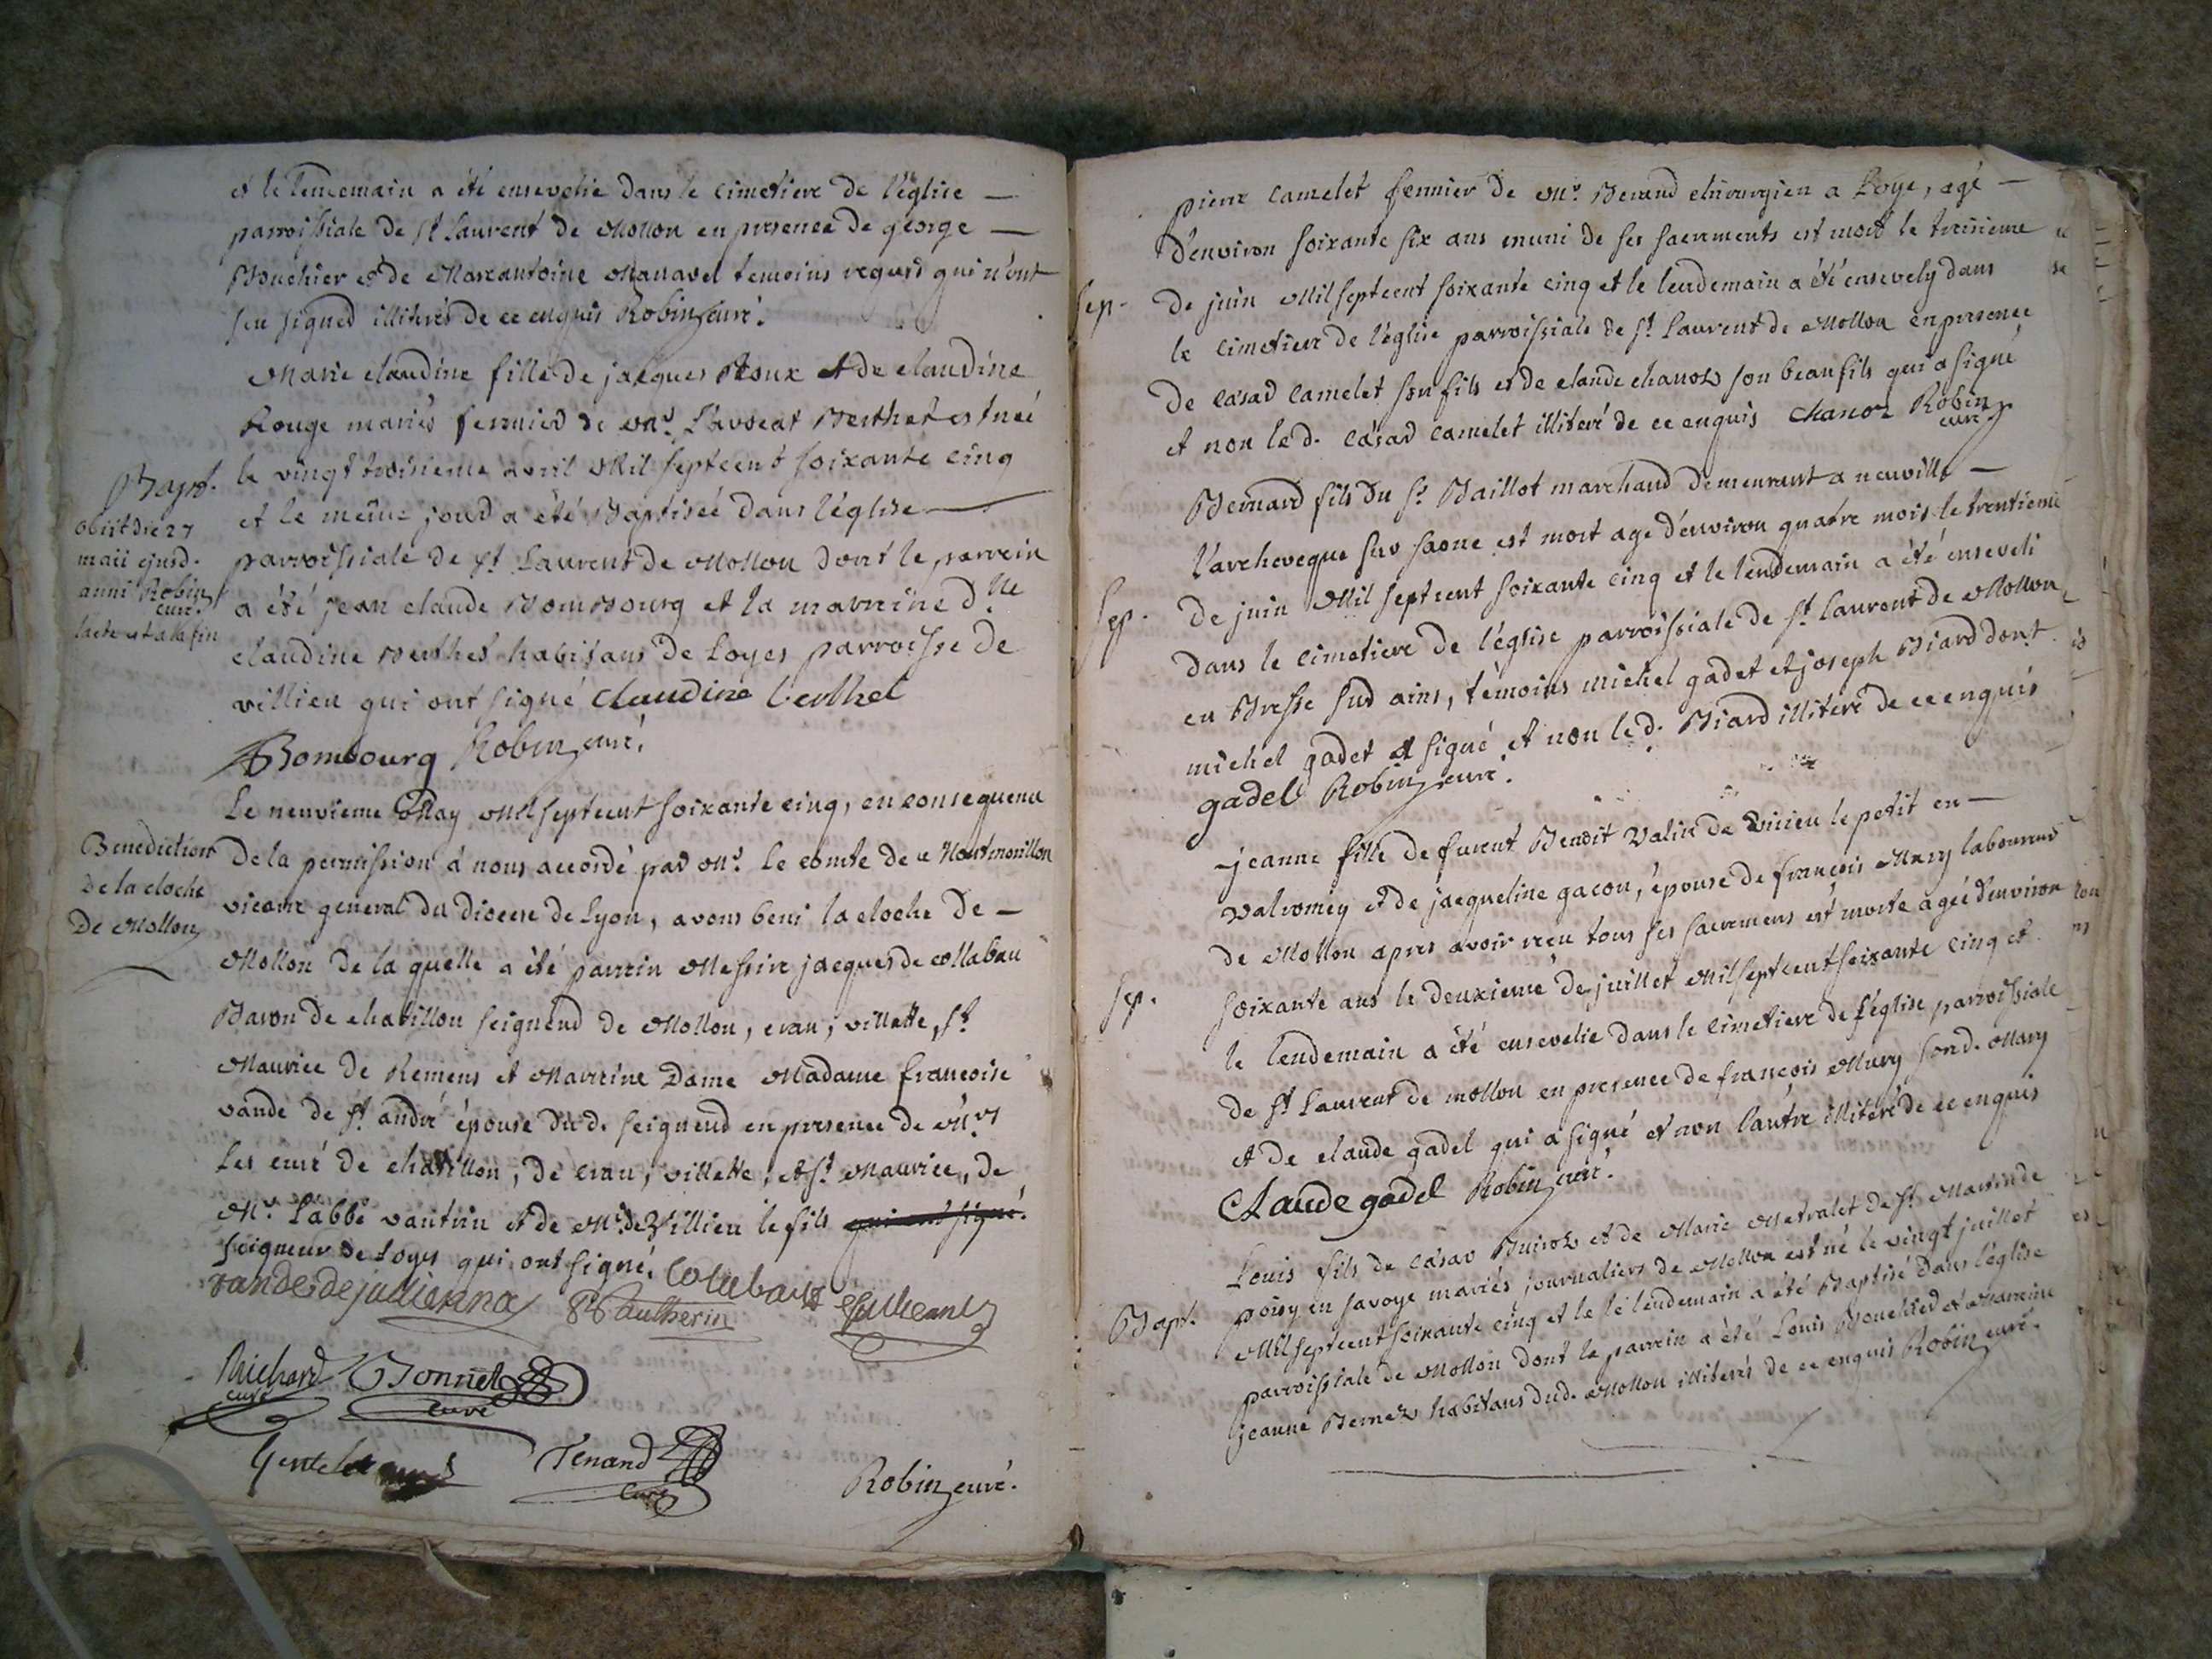 et le lendemain a été ensevelie dans le cimetiere de l'église —
parroissiale de st Laurent de Mollon en presence de george —
Bouchier et de Marcantoine Manavel temoins requis qui n'ont
sçu signer illiterés de ce enquis Robin curé.
Marie claudine fille de jacques Roux et de claudine
Rouge mariés fermier de mr. L'avocat Berthet est née
Bapt. le vingt troisieme avril Mil septcent soixante cinq
obiit die 27
maii ejusd.
anni Robin
curé.
lacte est a la fin
et le même jour a été Baptisée dans l'église —
parroissiale de st. Laurent de Mollon dont le parrein
a été jean claude Bombourg et la marreine dlle
claudine Berthet habitans de Loyes parroisse de
villieu qui ont signé Claudine berthet
Bombourg Robin curé.
Le neuvieme May Mil septcent soixante cinq, en consequence
Benediction
De la cloche
De Mollon
De la permission à nous accordé par mr. Le comte de Montmorillon
vicaire general du diocese de Lyon, avons beni la cloche de —
Mollon de la quelle a été parrein Messire jacques de collabau
Baron de chatillon seigneur de Mollon, cran, villette, st
Maurice de Remens et Marreine Dame Madame francoise
vande de st. andré épouse du d. seigneur en presence de mrs
Les curé de chatillon, de cran, villette, et st. Maurice, de
Mr. L'abbé vautrin et de Mr. de Villieu le fils qui ont signé.
seigneur de Loyes qui ont signé. Colabau
vande de jullienna
Richard
curé
Bonnet
curé
Tenand
curé
Robin curé.
pierre Camelet fermier de mr. Benand chirurgien a Loye, agé —
d'environ soixante six ans muni de ses sacrements est mort le troisieme
Sep. de juin Mil septcent soixante cinq et le lendemain a été ensevely dans
le cimetiere de l'église parroissiale de st. Laurent de Mollon en presence
de César Camelet son fils et de claude chanoz son beau fils qui a signé
et non le d. César camelet illiteré de ce enquis Chanoz Robin
curé
Bernard fils du sr. Baillot marchand demeurant a neuville —
L'archeveque sur saone est mort agé d'environ quatre mois le trentieme
Sep. de juin Mil septcent soixante cinq et le lendemain a été enseveli
dans le cimetiere de l'église parroissiale de st. laurent de Mollon
en Bresse sur ains, témoins michel gadet et joseph Biard dont
michel gadet a signé et non le d. Biard illiteré de ce enquis
gadel Robin curé.
jeanne fille de furent Benoit Valin de Virieu le petit en —
Valromey et de jacqueline gacon, épouse de françois Mary laboureur
de Mollon apres avoir reçu tous ses sacremens est morte agée d'environ
Sep. soixante ans le deuxieme de juillet Mil septcent soixante cinq et
le lendemain a été ensevelie dans le cimetiere de l'église parroissiale
de st. Laurent de mollon en presence de françois Mary son d. Mary
et de claude gadel qui a signé et non l'autre illiteré de ce enquis
Claude gadel Robin curé.
Louis fils de César Buiroz et de Marie Metralet de st. Martin de
poisy en savoye mariés journaliers de Mollon est né le vingt juillet
Bapt. Mil septcent soixante cinq et le le lendemain a été Baptisé dans l'église
parroissiale de Mollon dont le parrein a été Louis Bouchier et Marreine
jeanne Bernez habitans dud. Mollon illiterés de ce enquis Robin curé.